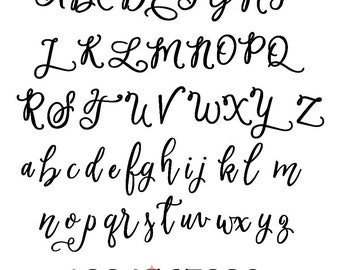 A B C D E F G H I
J K L M N O P Q
R S T U V W X Y Z
a b c d e f g h i j k l m
n o p q r s t u v w x y z